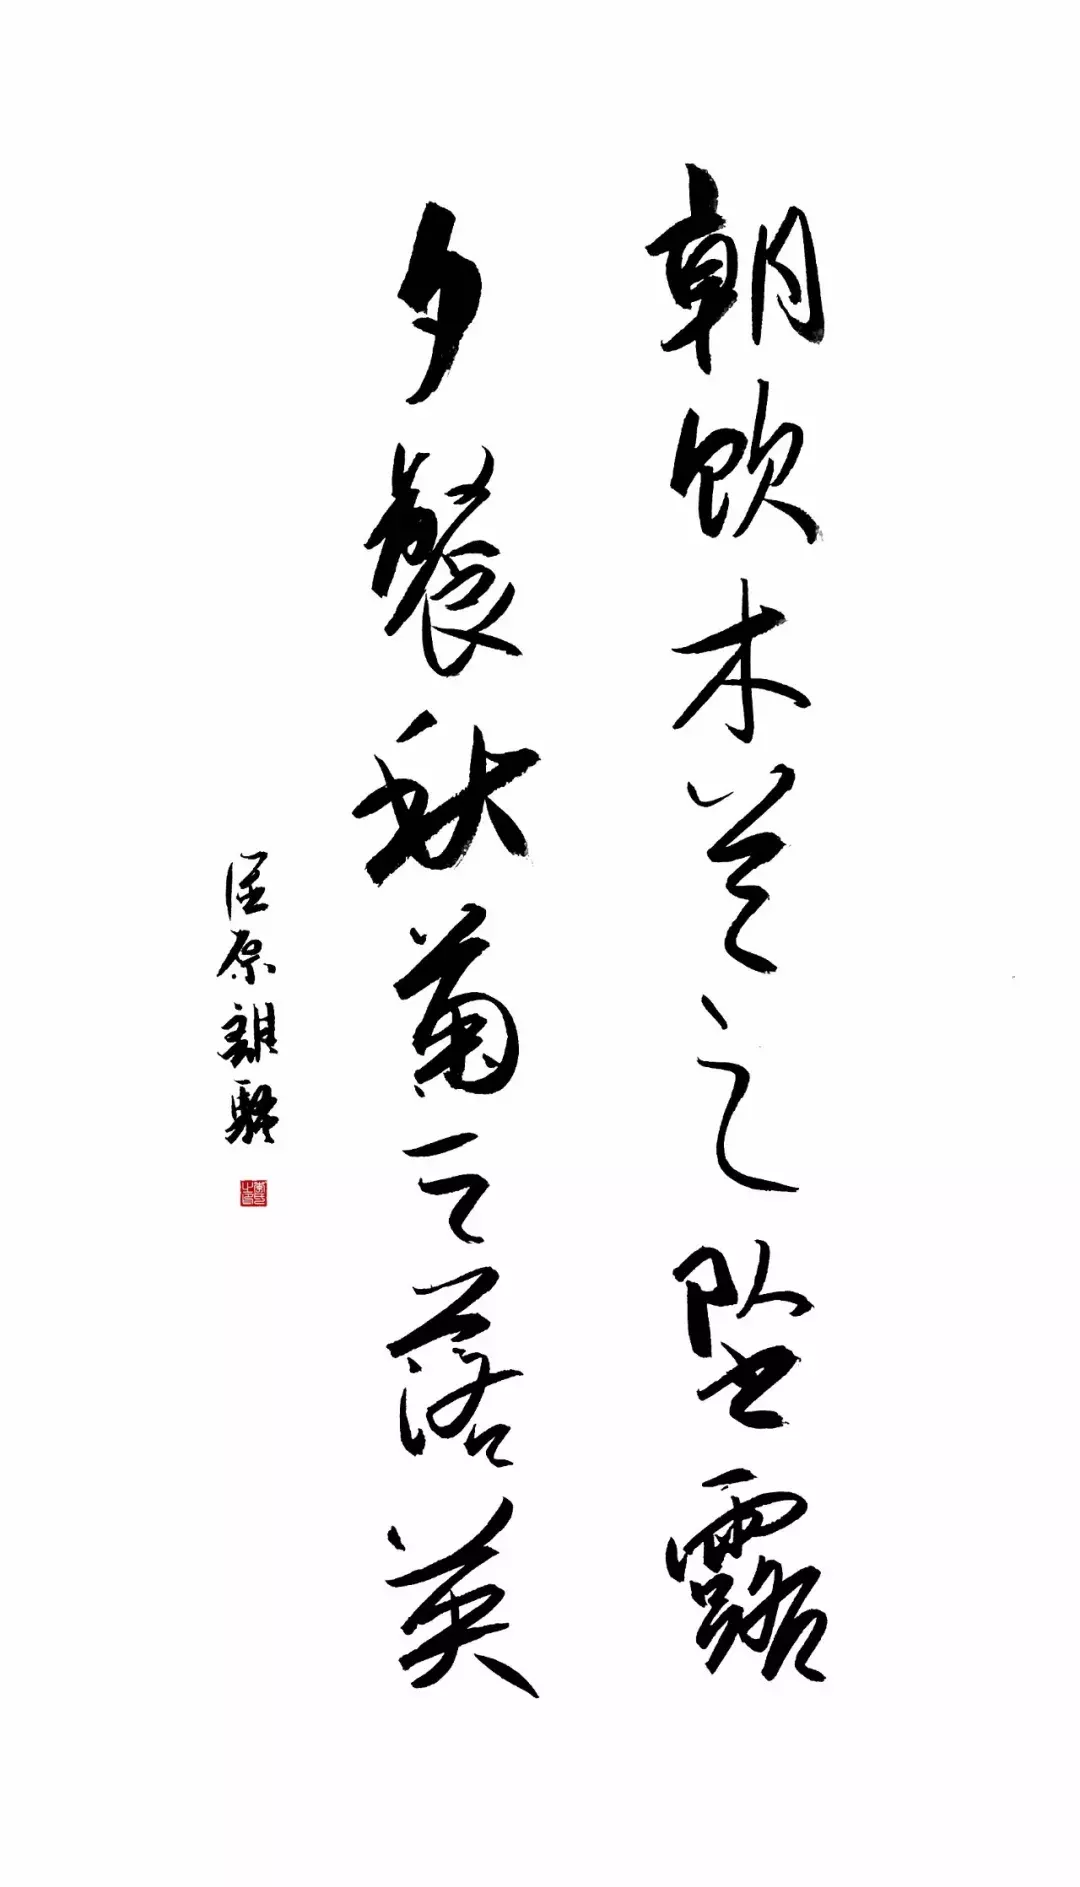 朝饮木兰之坠露
夕餐秋菊之落英
屈原離騷